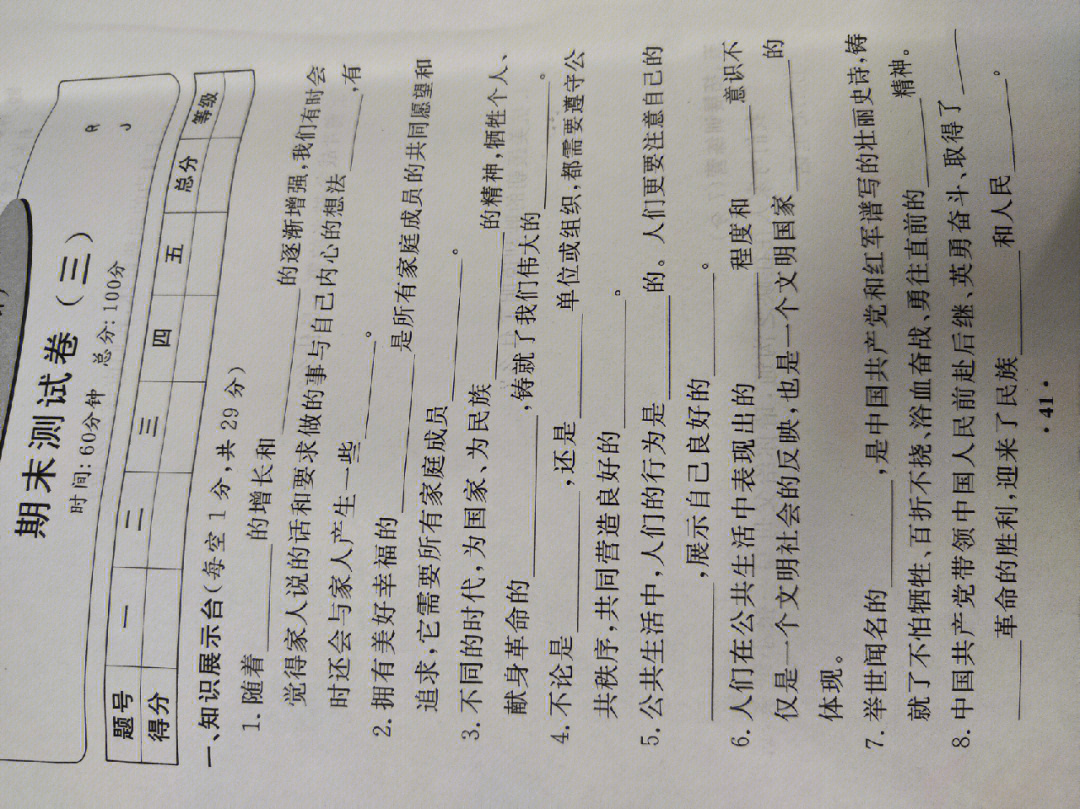 期末测试卷(三)
时间:60分钟 总分:100分
R
J
题号 一 二 三 四 五 总分 等级
得分
一、知识展示台(每空1分,共29分)
1. 随着______的增长和____________的逐渐增强,我们有时会
觉得家人说的话和要求做的事与自己内心的想法________,有
时还会与家人产生一些____________。
2. 拥有美好幸福的____________是所有家庭成员的共同愿望和
追求,它需要所有家庭成员____________。
3. 不同的时代,为国家、为民族____________的精神,牺牲个人、
献身革命的____________,铸就了我们伟大的____________。
4. 不论是________,还是________单位或组织,都需要遵守公
共秩序,共同营造良好的____________。
5. 公共生活中,人们的行为是________的。人们更要注意自己的
____________,展示自己良好的____________。
6. 人们在公共生活中表现出的________程度和________意识不
仅是一个文明社会的反映,也是一个文明国家________的
体现。
7. 举世闻名的________,是中国共产党和红军谱写的壮丽史诗,铸
就了不怕牺牲、百折不挠、浴血奋战、勇往直前的________精神。
8. 中国共产党带领中国人民前赴后继、英勇奋斗、取得了____
________革命的胜利,迎来了民族________和人民________。
·41·